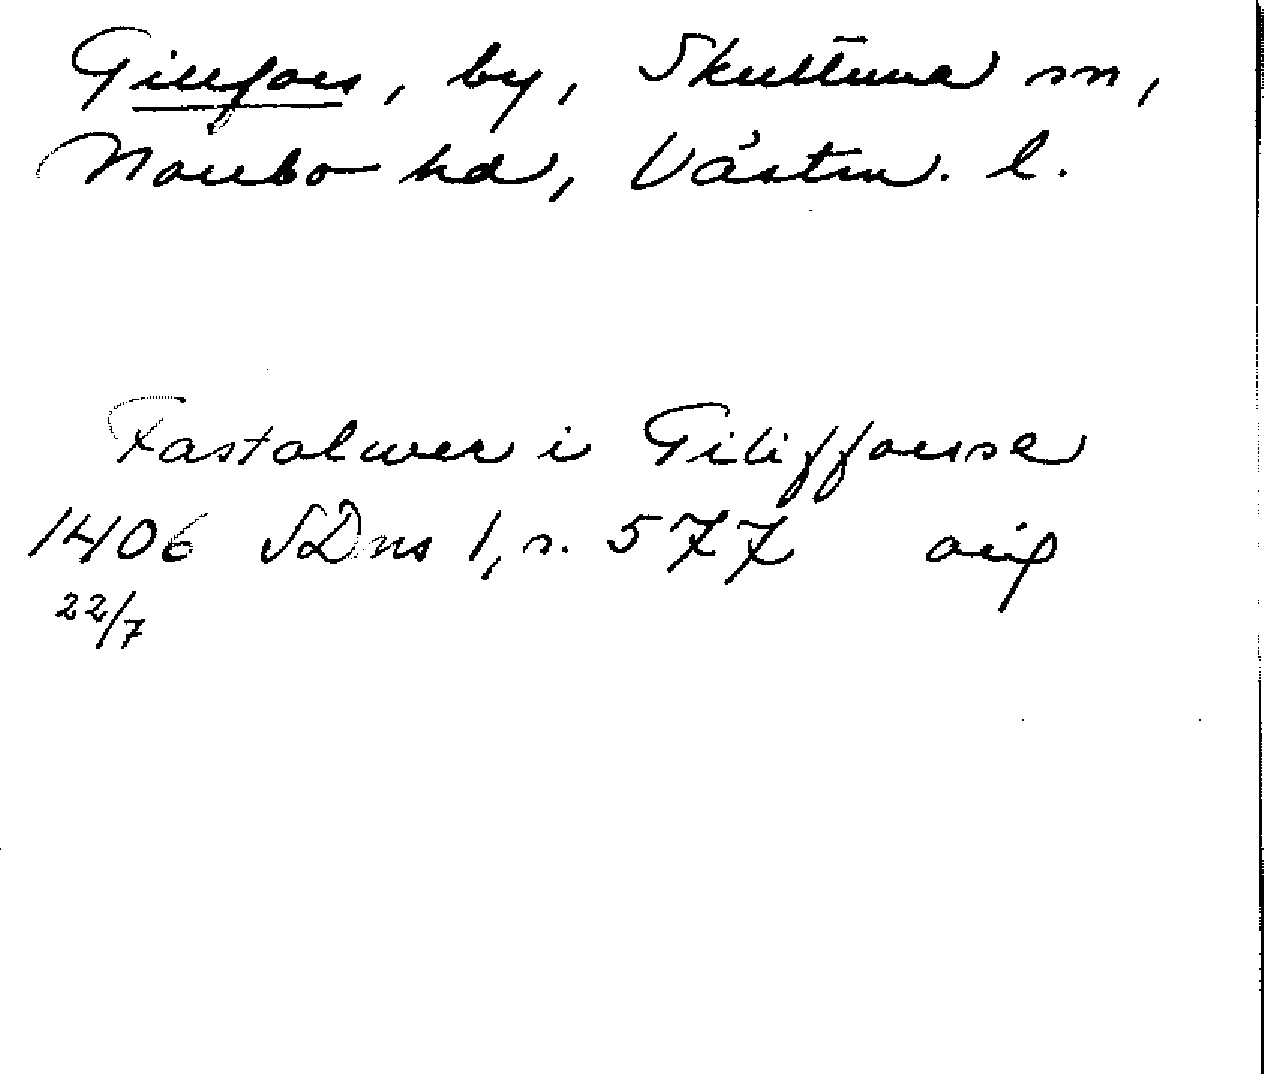 Gillfors, by, Skultuna sn,
Norrbo hd, Västm. l.
Fastolwer i Gilifforsse
1406 SDns 1, s. 577 orig
22/7